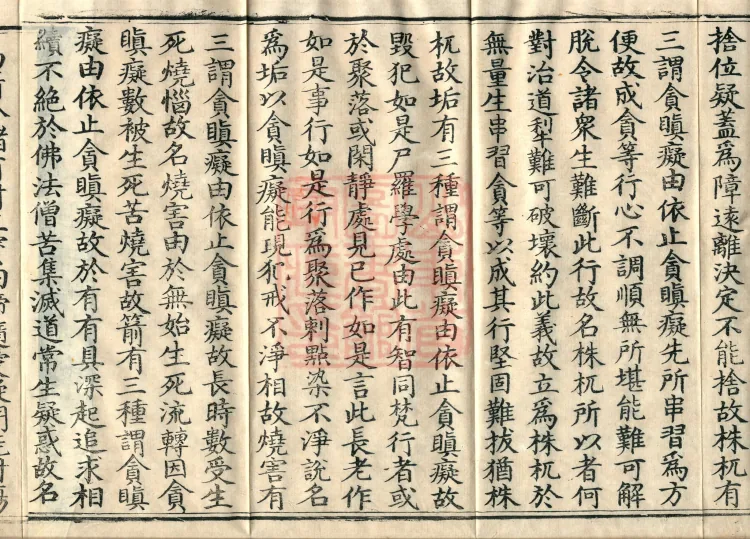 捨位疑蓋為障遠離決定不能捨故株杌有
三謂貪瞋癡由依止貪瞋癡先所串習為方
便故成貪等行心不調順無所堪能難可解
脫令諸衆生難斷此行故名株杌所以者何
對治道犁難可破壞約此義故立為株杌於
無量生串習貪等以成其行堅固難拔猶株
杌故垢有三種謂貪瞋癡由依止貪瞋癡故
毀犯如是尸羅學處由此有智同梵行者或
於聚落或閑靜處見已作如是言此長老作
如是事行如是行為聚落刺點染不淨說名
為垢以貪瞋癡能現犯戒不淨相故燒害有
三謂貪瞋癡由依止貪瞋癡故長時數受生
死燒惱故名燒害由於無始生死流轉因貪
瞋癡數被生死苦燒害故箭有三種謂貪瞋
癡由依止貪瞋癡故於有有具深起追求相
續不絕於佛法僧苦集滅道常生疑惑故名